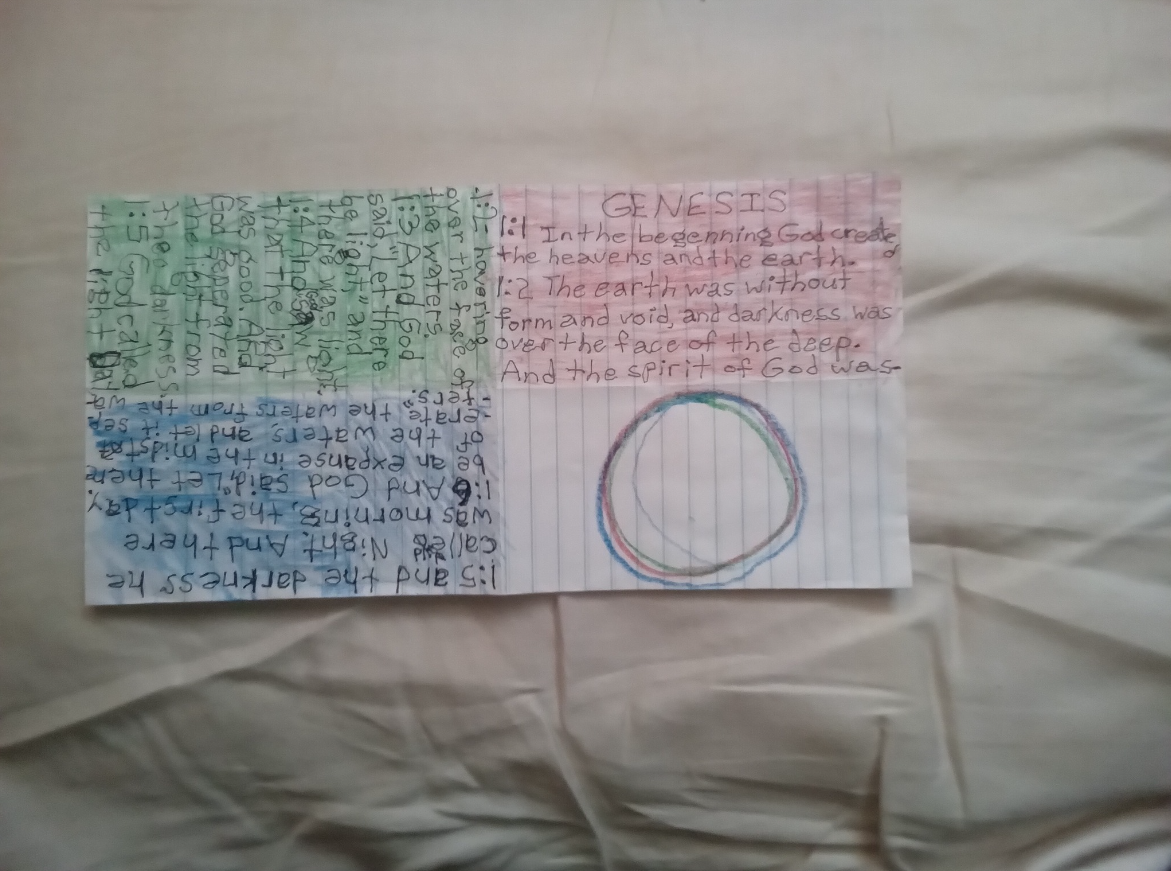 GENESIS
1:1 In the begenning God created
the heavens and the earth.
1:2 The earth was without
form and void, and darkness was
over the face of the deep.
And the spirit of God was-
-1:2- hovering
over the fase of
the waters.
1:3 And God
said, "Let there
be light" and
there was light.
1:4 And God saw
that the light
was good. And
God seperated
the light from
the darkness.
1:5 God called
the light Day
1:5 and the darkness he
called Night. And there
was morning, the first day.
1:6 And God said, "Let there
be an expanse in the midst
of the waters, and let it sep
-erate" the waters from the wa
-ters".